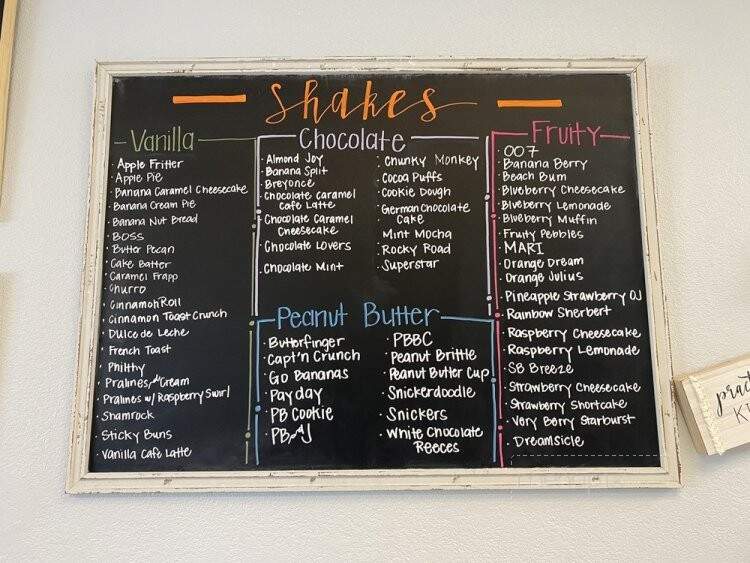 Shakes
Vanilla
Apple Fritter
Apple Pie
Banana Caramel Cheesecake
Banana Cream Pie
Banana Nut Bread
BOSS
Butter Pecan
Cake Batter
Caramel Frapp
Churro
Cinnamon Roll
Cinnamon Toast Crunch
Dulce de Leche
French Toast
Philthy
Pralines & Cream
Pralines w/ Raspberry Swirl
Shamrock
Sticky Buns
Vanilla Cafe Latte
Chocolate
Almond Joy
Banana Split
Breyonce
Chocolate Caramel
Cafe Latte
Chocolate Caramel
Cheesecake
Chocolate Lovers
Chocolate Mint
Chunky Monkey
Cocoa Puffs
Cookie Dough
German Chocolate
Cake
Mint Mocha
Rocky Road
Superstar
Peanut Butter
Butterfinger
Capt'n Crunch
Go Bananas
Payday
PB Cookie
PB & J
PBBC
Peanut Brittle
Peanut Butter Cup
Snickerdoodle
Snickers
White Chocolate
Reeces
Fruity
007
Banana Berry
Beach Bum
Blueberry Cheesecake
Blueberry Lemonade
Blueberry Muffin
Fruity Pebbles
MARI
Orange Dream
Orange Julius
Pineapple Strawberry OJ
Rainbow Sherbert
Raspberry Cheesecake
Raspberry Lemonade
SB Breeze
Strawberry Cheesecake
Strawberry Shortcake
Very Berry Starburst
Dreamsicle